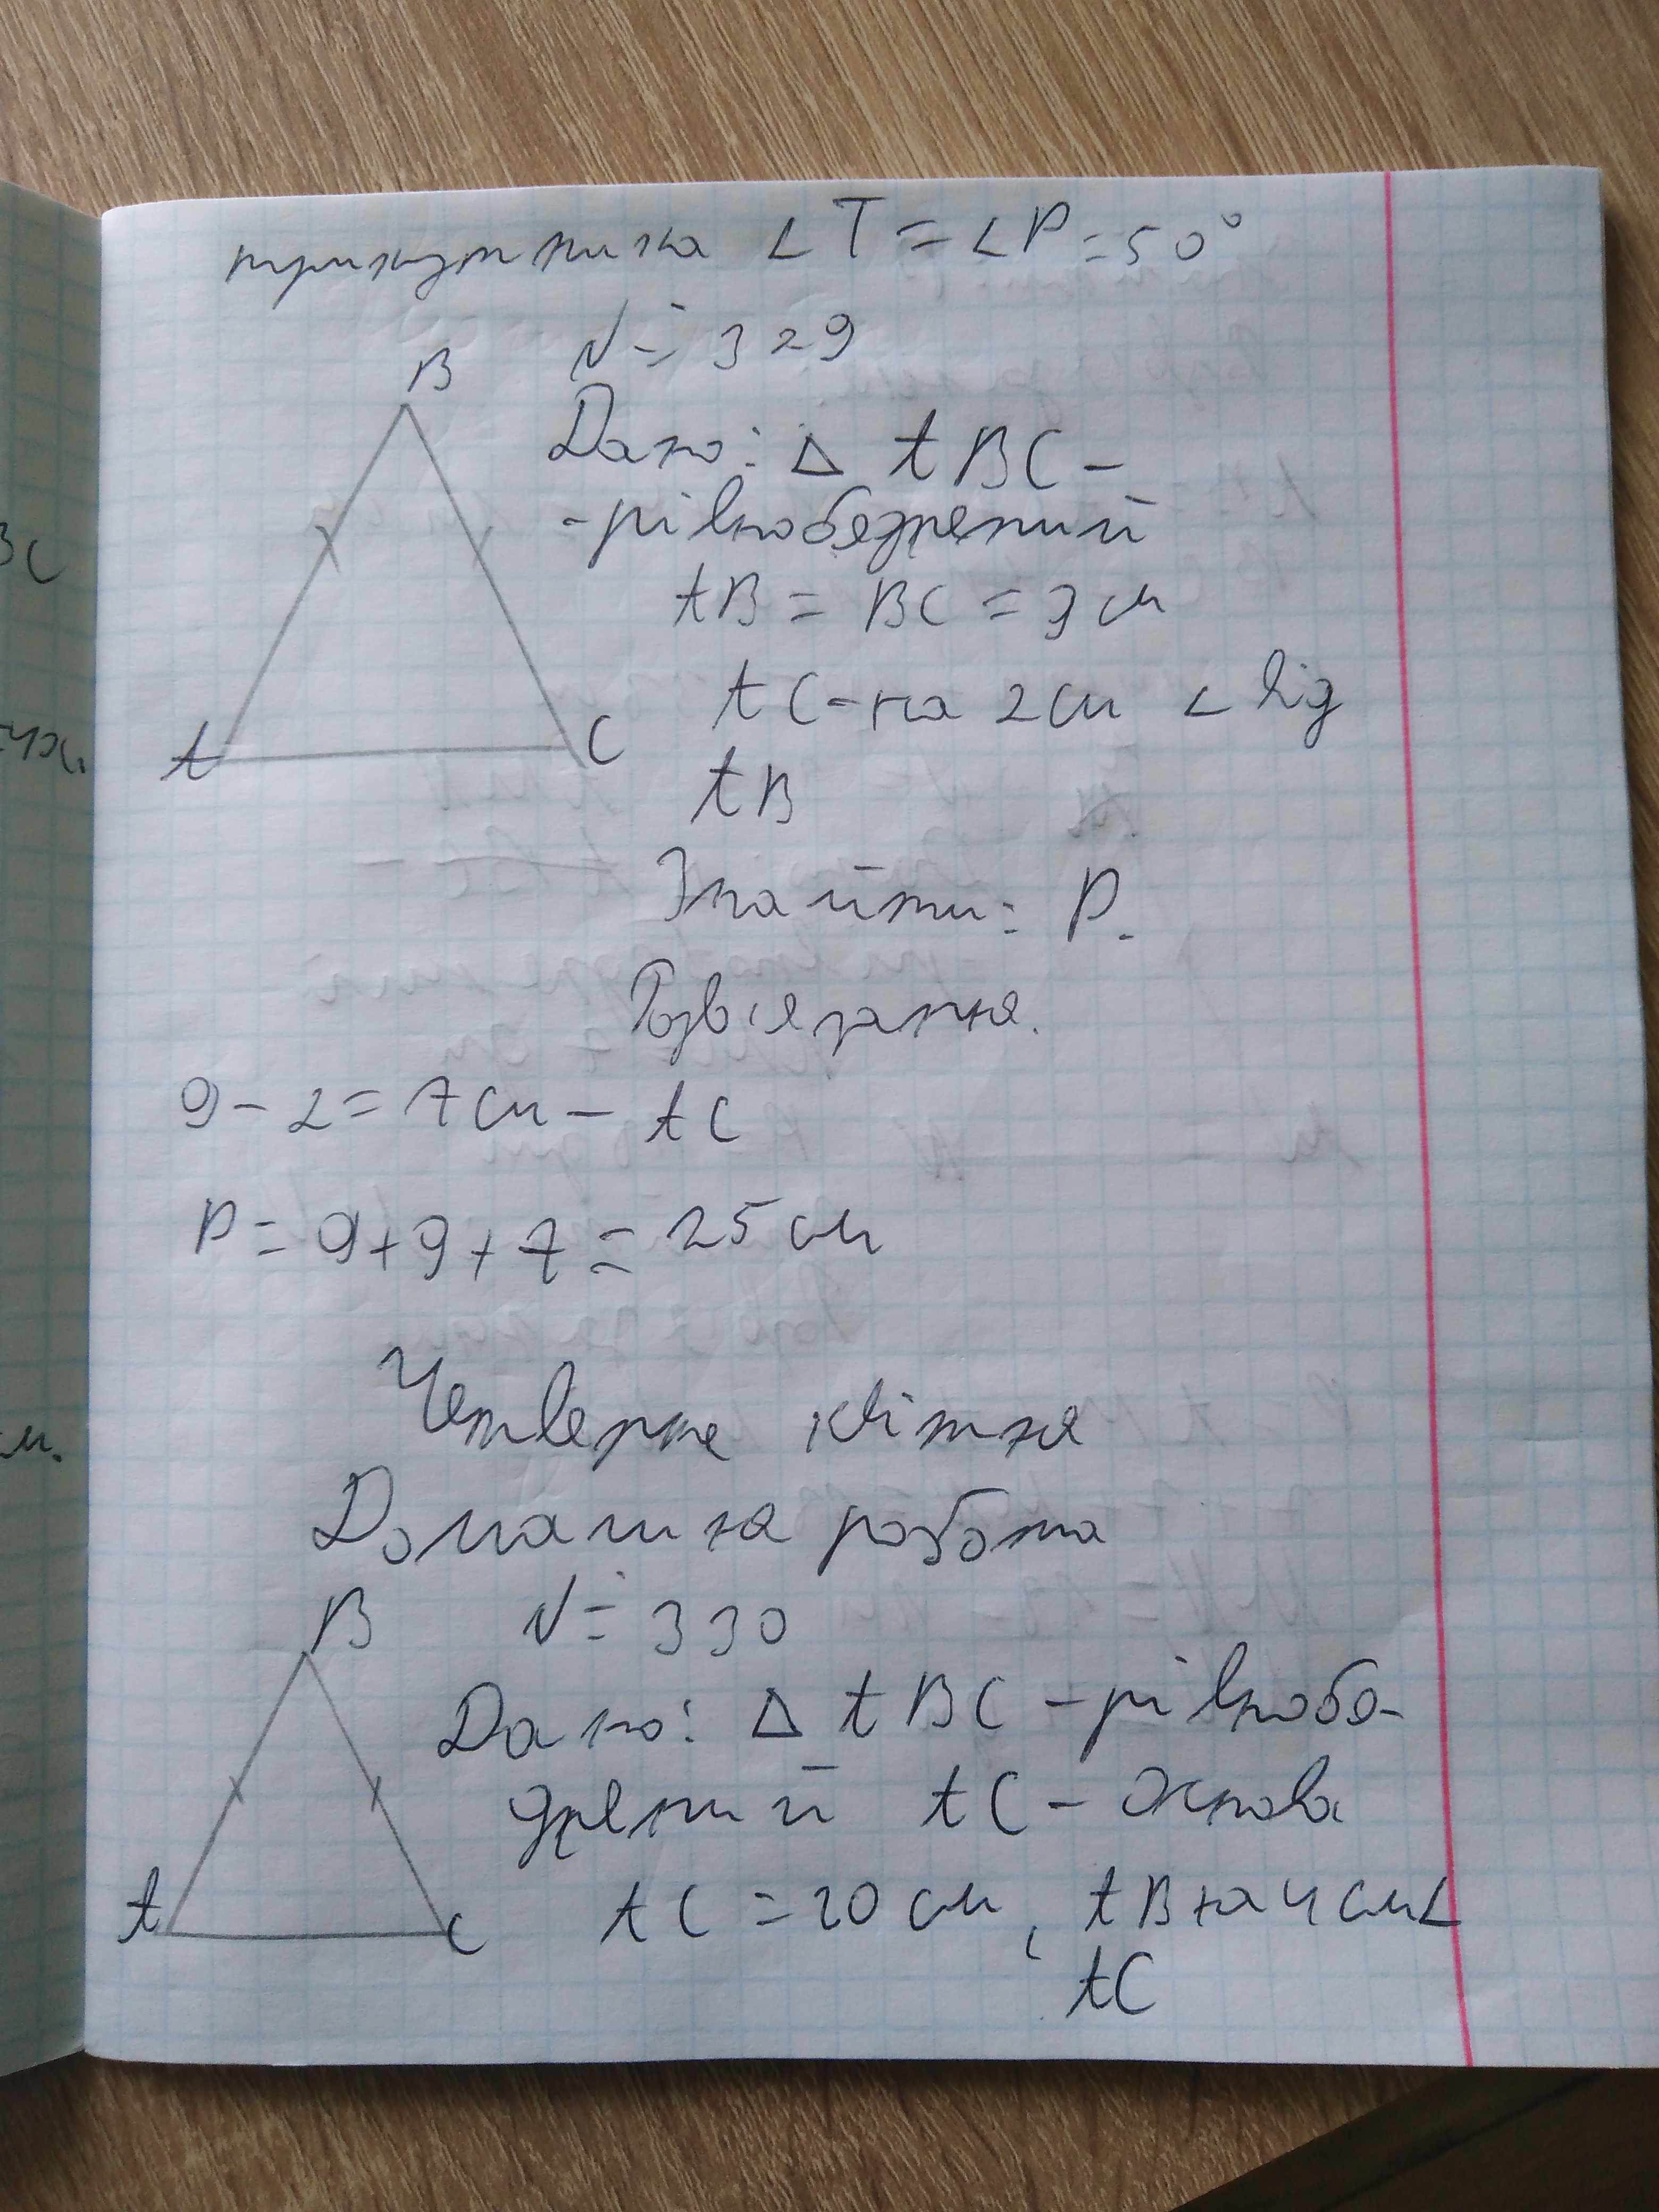 трикутника ∠T = ∠P = 50°
№ 329
B
Дано: Δ ABC –
- рівнобедрений
AB = BC = 9 см
AC - на 2 см < від
A
C
AB
Знайти: P.
Розв'язання.
9 - 2 = 7 см – AC
P = 9 + 9 + 7 = 25 см
Четверте квітня
Домашня робота
B
№ 330
Дано: Δ ABC – рівнобе-
дрений AC – основа
A
C
AC = 20 см, AB на 4 см <
AC